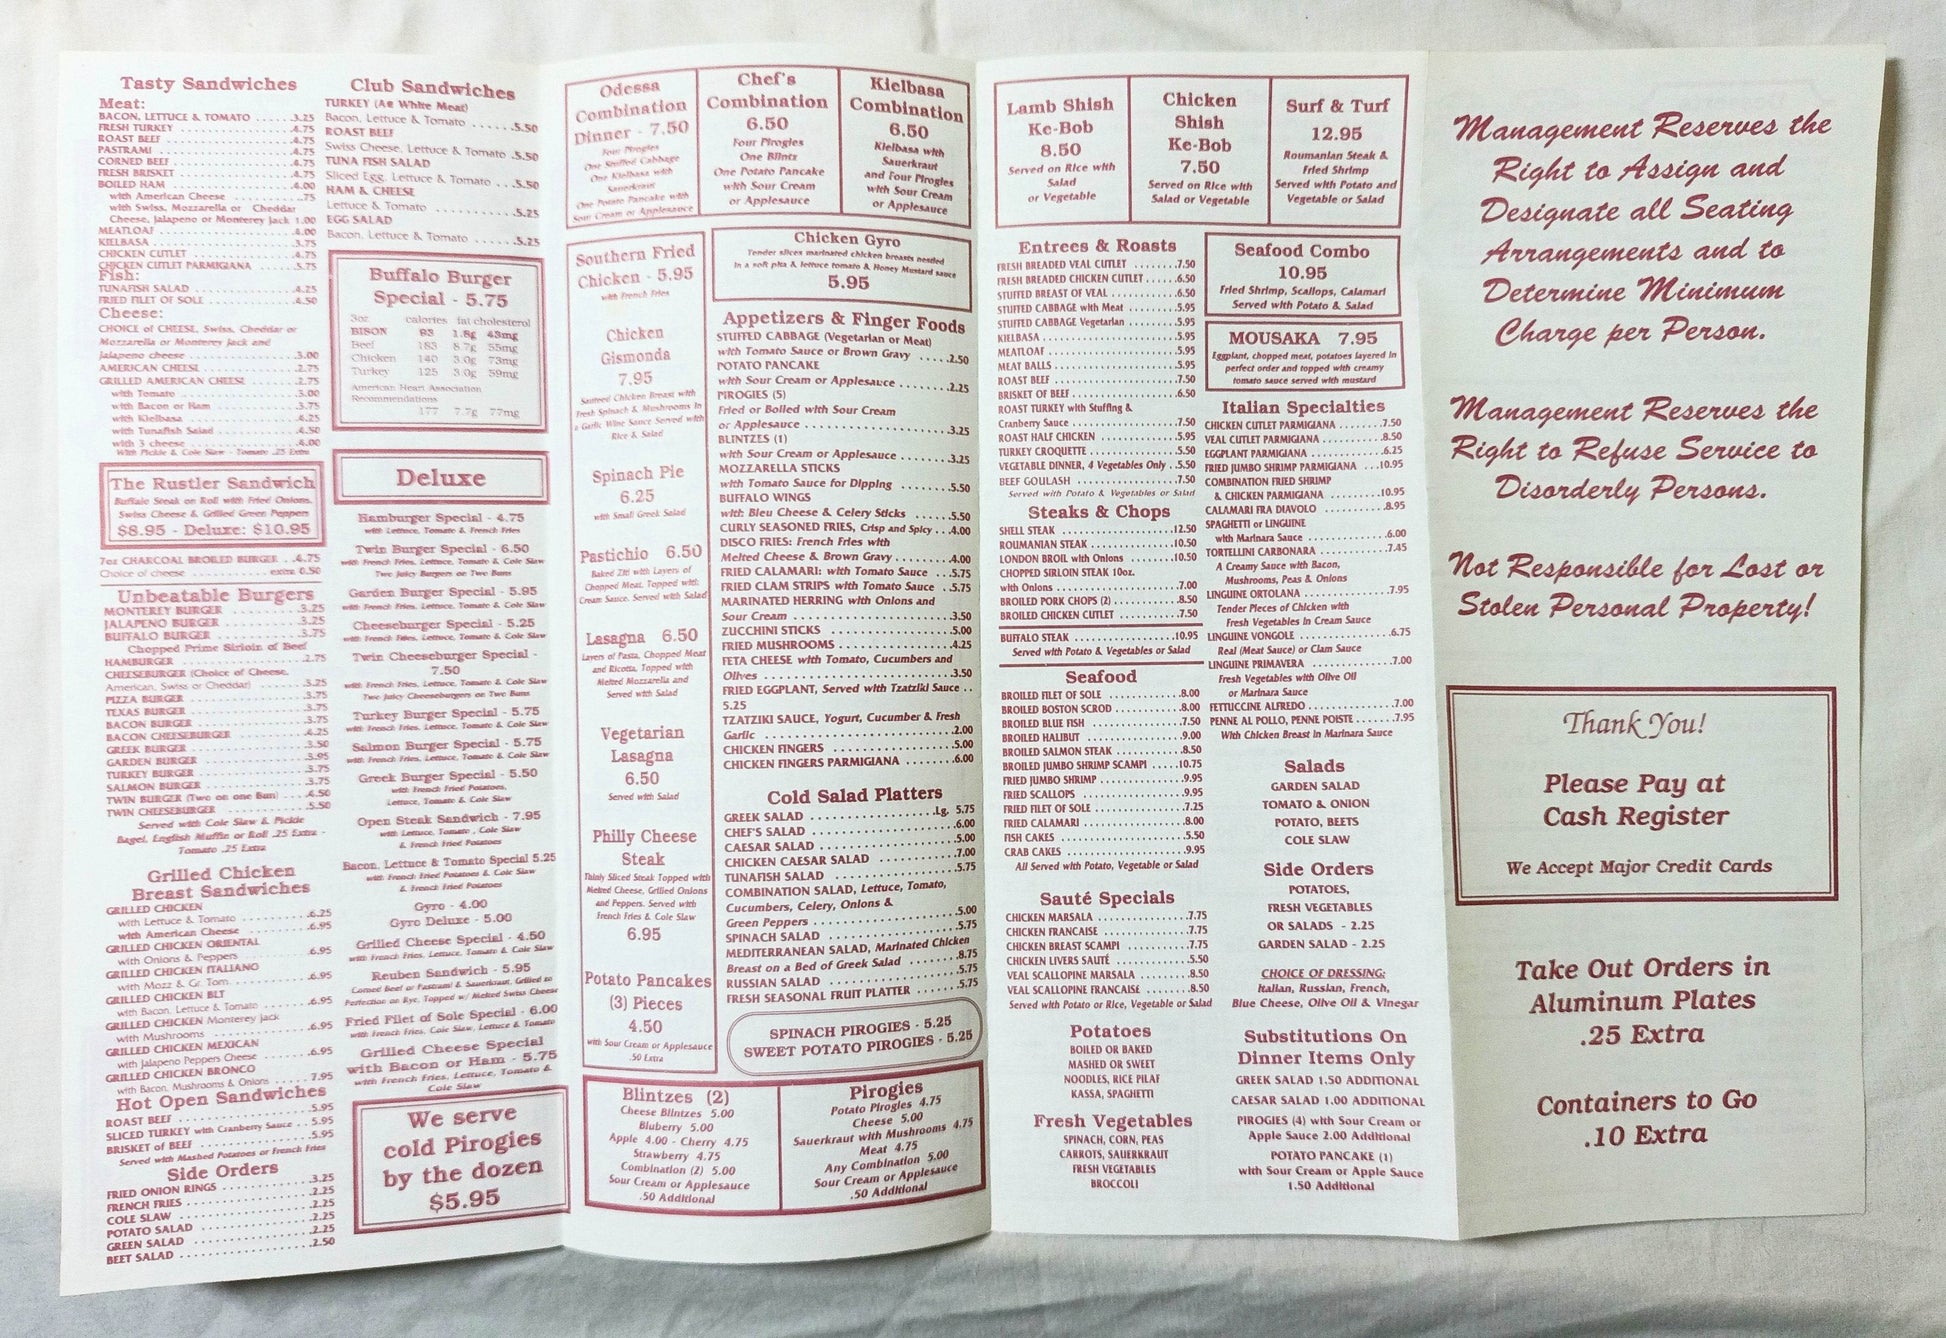 Tasty Sandwiches
Meat:
BACON, LETTUCE & TOMATO ......3.25
FRESH TURKEY ......4.75
ROAST BEEF ......4.75
PASTRAMI ......4.75
CORNED BEEF ......4.75
FRESH BRISKET ......4.75
BOILED HAM ......4.00
with American Cheese ......75
with Swiss, Mozzarella or Cheddar
Cheese, Jalapeno or Monterey Jack 1.00
MEATLOAF ......4.00
KIELBASA ......3.75
CHICKEN CUTLET ......4.75
CHICKEN CUTLET PARMIGIANA ......5.75
Fish:
TUNAFISH SALAD ......4.25
FRIED FILET OF SOLE ......4.50
Cheese:
CHOICE of CHEESE, Swiss, Cheddar or
Mozzarella or Monterey Jack and
Jalapeno cheese ......3.00
AMERICAN CHEESE ......2.75
GRILLED AMERICAN CHEESE ......2.75
with Tomato ......3.00
with Bacon or Ham ......3.75
with Kielbasa ......4.25
with Tunafish Salad ......4.50
with 3 cheese ......4.00
With Pickle & Cole Slaw - Tomato .25 Extra
The Rustler Sandwich
Buffalo Steak on Roll with Fried Onions,
Swiss Cheese & Grilled Green Peppers
$8.95 - Deluxe: $10.95
7oz CHARCOAL BROILED BURGER ..4.75
Choice of cheese ......extra 0.50
Unbeatable Burgers
MONTEREY BURGER ......3.25
JALAPENO BURGER ......3.25
BUFFALO BURGER ......3.75
Chopped Prime Sirloin of Beef
HAMBURGER ......2.75
CHEESEBURGER (Choice of Cheese,
American, Swiss or Cheddar) ......3.25
PIZZA BURGER ......3.75
TEXAS BURGER ......3.75
BACON BURGER ......3.75
BACON CHEESEBURGER ......4.25
GREEK BURGER ......3.50
GARDEN BURGER ......3.95
TURKEY BURGER ......3.75
SALMON BURGER ......3.75
TWIN BURGER (Two on one Bun) ......4.50
TWIN CHEESEBURGER ......5.50
Served with Cole Slaw & Pickle
Bagel, English Muffin or Roll .25 Extra -
Tomato .25 Extra
Grilled Chicken
Breast Sandwiches
GRILLED CHICKEN
with Lettuce & Tomato ......6.25
with American Cheese ......6.95
GRILLED CHICKEN ORIENTAL
with Onions & Peppers ......6.95
GRILLED CHICKEN ITALIANO
with Mozz & Gr. Tom. ......6.95
GRILLED CHICKEN BLT
with Bacon, Lettuce & Tomato ......6.95
GRILLED CHICKEN Monterey Jack
with Mushrooms ......6.95
GRILLED CHICKEN MEXICAN
with Jalapeno Peppers Cheese ......6.95
GRILLED CHICKEN BRONCO
with Bacon, Mushrooms & Onions ......7.95
Hot Open Sandwiches
ROAST BEEF ......5.95
SLICED TURKEY with Cranberry Sauce ..5.95
BRISKET of BEEF ......5.95
Served with Mashed Potatoes or French Fries
Side Orders
FRIED ONION RINGS ......3.25
FRENCH FRIES ......2.25
COLE SLAW ......2.25
POTATO SALAD ......2.25
GREEN SALAD ......2.25
BEET SALAD ......2.50
Club Sandwiches
TURKEY (All White Meat)
Bacon, Lettuce & Tomato ......5.50
ROAST BEEF
Swiss Cheese, Lettuce & Tomato .5.50
TUNA FISH SALAD
Sliced Egg, Lettuce & Tomato ...5.50
HAM & CHEESE
Lettuce & Tomato ......5.25
EGG SALAD
Bacon, Lettuce & Tomato ......5.25
Buffalo Burger
Special - 5.75
3oz calories fat cholesterol
BISON 93 1.8g 43mg
Beef 183 8.7g 55mg
Chicken 140 3.0g 73mg
Turkey 125 3.0g 59mg
American Heart Association
Recommendations
177 7.7g 77mg
Deluxe
Hamburger Special - 4.75
with Lettuce, Tomato & French Fries
Twin Burger Special - 6.50
with French Fries, Lettuce, Tomato & Cole Slaw
Two Juicy Burgers on Two Buns
Garden Burger Special - 5.95
with French Fries, Lettuce, Tomato & Cole Slaw
Cheeseburger Special - 5.25
with French Fries, Lettuce, Tomato & Cole Slaw
Twin Cheeseburger Special -
7.50
with French Fries, Lettuce, Tomato & Cole Slaw
Two Juicy Cheeseburgers on Two Buns
Turkey Burger Special - 5.75
with French Fries, Lettuce, Tomato & Cole Slaw
Salmon Burger Special - 5.75
with French Fries, Lettuce, Tomato & Cole Slaw
Greek Burger Special - 5.50
with French Fried Potatoes,
Lettuce, Tomato & Cole Slaw
Open Steak Sandwich - 7.95
with Lettuce, Tomato, Cole Slaw
& French Fried Potatoes
Bacon, Lettuce & Tomato Special 5.25
with French Fried Potatoes & Cole Slaw
& French Fried Potatoes
Gyro - 4.00
Gyro Deluxe - 5.00
Grilled Cheese Special - 4.50
with French Fries, Lettuce, Tomato & Cole Slaw
Reuben Sandwich - 5.95
Corned Beef or Pastrami & Sauerkraut, Grilled to
Perfection on Rye, Topped w/ Melted Swiss Cheese
Fried Filet of Sole Special - 6.00
with French Fries, Cole Slaw, Lettuce & Tomato
Grilled Cheese Special
with Bacon or Ham - 5.75
with French Fries, Lettuce, Tomato &
Cole Slaw
We serve
cold Pirogies
by the dozen
$5.95
Odessa
Combination
Dinner - 7.50
Four Pirogies
One Stuffed Cabbage
One Kielbasa with
Sauerkraut
One Potato Pancake with
Sour Cream or Applesauce
Chef's
Combination
6.50
Four Pirogies
One Blintz
One Potato Pancake
with Sour Cream
or Applesauce
Kielbasa
Combination
6.50
Kielbasa with
Sauerkraut
and Four Pirogies
with Sour Cream
or Applesauce
Southern Fried
Chicken - 5.95
with French Fries
Chicken
Gismonda
7.95
Sauteed Chicken Breast with
Fresh Spinach & Mushrooms in
a Garlic Wine Sauce Served with
Rice & Salad
Spinach Pie
6.25
with Small Greek Salad
Pastichio 6.50
Baked Ziti with Layers of
Chopped Meat, Topped with
Cream Sauce. Served with Salad
Lasagna 6.50
Layers of Pasta, Chopped Meat
and Ricotta, Topped with
Melted Mozzarella and
Served with Salad
Vegetarian
Lasagna
6.50
Served with Salad
Philly Cheese
Steak
Thinly Sliced Steak Topped with
Melted Cheese, Grilled Onions
and Peppers. Served with
French Fries & Cole Slaw
6.95
Potato Pancakes
(3) Pieces
4.50
with Sour Cream or Applesauce
.50 Extra
Chicken Gyro
Tender slices marinated chicken breasts nestled
in a soft pita & lettuce tomato & Honey Mustard sauce
5.95
Appetizers & Finger Foods
STUFFED CABBAGE (Vegetarian or Meat)
with Tomato Sauce or Brown Gravy .....2.50
POTATO PANCAKE
with Sour Cream or Applesauce ......2.25
PIROGIES (5)
Fried or Boiled with Sour Cream
or Applesauce ......3.25
BLINTZES (1)
with Sour Cream or Applesauce ......3.25
MOZZARELLA STICKS
with Tomato Sauce for Dipping ......5.50
BUFFALO WINGS
with Bleu Cheese & Celery Sticks ......5.50
CURLY SEASONED FRIES, Crisp and Spicy ..4.00
DISCO FRIES: French Fries with
Melted Cheese & Brown Gravy ......4.00
FRIED CALAMARI: with Tomato Sauce ...5.75
FRIED CLAM STRIPS with Tomato Sauce ..5.75
MARINATED HERRING with Onions and
Sour Cream ......3.50
ZUCCHINI STICKS ......5.00
FRIED MUSHROOMS ......4.25
FETA CHEESE with Tomato, Cucumbers and
Olives ......3.50
FRIED EGGPLANT, Served with Tzatziki Sauce ..
5.25
TZATZIKI SAUCE, Yogurt, Cucumber & Fresh
Garlic ......2.00
CHICKEN FINGERS ......5.00
CHICKEN FINGERS PARMIGIANA ......6.00
Cold Salad Platters
GREEK SALAD ......Lg. 5.75
CHEF'S SALAD ......6.00
CAESAR SALAD ......5.00
CHICKEN CAESAR SALAD ......7.00
TUNAFISH SALAD ......5.75
COMBINATION SALAD, Lettuce, Tomato,
Cucumbers, Celery, Onions &
Green Peppers ......5.00
SPINACH SALAD ......5.75
MEDITERRANEAN SALAD, Marinated Chicken
Breast on a Bed of Greek Salad ......8.75
RUSSIAN SALAD ......5.75
FRESH SEASONAL FRUIT PLATTER ......5.75
SPINACH PIROGIES - 5.25
SWEET POTATO PIROGIES - 5.25
Blintzes (2)
Cheese Blintzes 5.00
Bluberry 5.00
Apple 4.00 - Cherry 4.75
Strawberry 4.75
Combination (2) 5.00
Sour Cream or Applesauce
.50 Additional
Pirogies
Potato Pirogies 4.75
Cheese 5.00
Sauerkraut with Mushrooms 4.75
Meat 4.75
Any Combination 5.00
Sour Cream or Applesauce
.50 Additional
Lamb Shish
Ke-Bob
8.50
Served on Rice with
Salad
or Vegetable
Chicken
Shish
Ke-Bob
7.50
Served on Rice with
Salad or Vegetable
Surf & Turf
12.95
Roumanian Steak &
Fried Shrimp
Served with Potato and
Vegetable or Salad
Entrees & Roasts
FRESH BREADED VEAL CUTLET ......7.50
FRESH BREADED CHICKEN CUTLET ......6.50
STUFFED BREAST OF VEAL ......6.50
STUFFED CABBAGE with Meat ......5.95
STUFFED CABBAGE Vegetarian ......5.95
KIELBASA ......5.95
MEATLOAF ......5.95
MEAT BALLS ......5.95
ROAST BEEF ......7.50
BRISKET OF BEEF ......6.50
ROAST TURKEY with Stuffing &
Cranberry Sauce ......7.50
ROAST HALF CHICKEN ......5.95
TURKEY CROQUETTE ......5.50
VEGETABLE DINNER, 4 Vegetables Only ..5.50
BEEF GOULASH ......7.50
Served with Potato & Vegetables or Salad
Steaks & Chops
SHELL STEAK ......12.50
ROUMANIAN STEAK ......10.50
LONDON BROIL with Onions ......10.50
CHOPPED SIRLOIN STEAK 10oz.
with Onions ......7.00
BROILED PORK CHOPS (2) ......8.50
BROILED CHICKEN CUTLET ......7.50
BUFFALO STEAK ......10.95
Served with Potato & Vegetables or Salad
Seafood
BROILED FILET OF SOLE ......8.00
BROILED BOSTON SCROD ......8.00
BROILED BLUE FISH ......7.50
BROILED HALIBUT ......9.00
BROILED SALMON STEAK ......8.50
BROILED JUMBO SHRIMP SCAMPI ......10.75
FRIED JUMBO SHRIMP ......9.95
FRIED SCALLOPS ......9.95
FRIED FILET OF SOLE ......7.25
FRIED CALAMARI ......8.00
FISH CAKES ......5.50
CRAB CAKES ......9.95
All Served with Potato, Vegetable or Salad
Sauté Specials
CHICKEN MARSALA ......7.75
CHICKEN FRANCAISE ......7.75
CHICKEN BREAST SCAMPI ......7.75
CHICKEN LIVERS SAUTÉ ......5.50
VEAL SCALLOPINE MARSALA ......8.50
VEAL SCALLOPINE FRANCAISE ......8.50
Served with Potato or Rice, Vegetable or Salad
Potatoes
BOILED OR BAKED
MASHED OR SWEET
NOODLES, RICE PILAF
KASSA, SPAGHETTI
Fresh Vegetables
SPINACH, CORN, PEAS
CARROTS, SAUERKRAUT
FRESH VEGETABLES
BROCCOLI
Seafood Combo
10.95
Fried Shrimp, Scallops, Calamari
Served with Potato & Salad
MOUSAKA 7.95
Eggplant, chopped meat, potatoes layered in
perfect order and topped with creamy
tomato sauce served with mustard
Italian Specialties
CHICKEN CUTLET PARMIGIANA ......7.50
VEAL CUTLET PARMIGIANA ......8.50
EGGPLANT PARMIGIANA ......6.25
FRIED JUMBO SHRIMP PARMIGIANA ...10.95
COMBINATION FRIED SHRIMP
& CHICKEN PARMIGIANA ......10.95
CALAMARI FRA DIAVOLO ......8.95
SPAGHETTI or LINGUINE
with Marinara Sauce ......6.00
TORTELLINI CARBONARA ......7.45
A Creamy Sauce with Bacon,
Mushrooms, Peas & Onions
LINGUINE ORTOLANA ......7.95
Tender Pieces of Chicken with
Fresh Vegetables In Cream Sauce
LINGUINE VONGOLE ......6.75
Real (Meat Sauce) or Clam Sauce
LINGUINE PRIMAVERA ......7.00
Fresh Vegetables with Olive Oil
or Marinara Sauce
FETTUCCINE ALFREDO ......7.00
PENNE AL POLLO, PENNE POISTE ......7.95
With Chicken Breast in Marinara Sauce
Salads
GARDEN SALAD
TOMATO & ONION
POTATO, BEETS
COLE SLAW
Side Orders
POTATOES,
FRESH VEGETABLES
OR SALADS - 2.25
GARDEN SALAD - 2.25
CHOICE OF DRESSING:
Italian, Russian, French,
Blue Cheese, Olive Oil & Vinegar
Substitutions On
Dinner Items Only
GREEK SALAD 1.50 ADDITIONAL
CAESAR SALAD 1.00 ADDITIONAL
PIROGIES (4) with Sour Cream or
Apple Sauce 2.00 Additional
POTATO PANCAKE (1)
with Sour Cream or Apple Sauce
1.50 Additional
Management Reserves the
Right to Assign and
Designate all Seating
Arrangements and to
Determine Minimum
Charge per Person.
Management Reserves the
Right to Refuse Service to
Disorderly Persons.
Not Responsible for Lost or
Stolen Personal Property!
Thank You!
Please Pay at
Cash Register
We Accept Major Credit Cards
Take Out Orders in
Aluminum Plates
.25 Extra
Containers to Go
.10 Extra